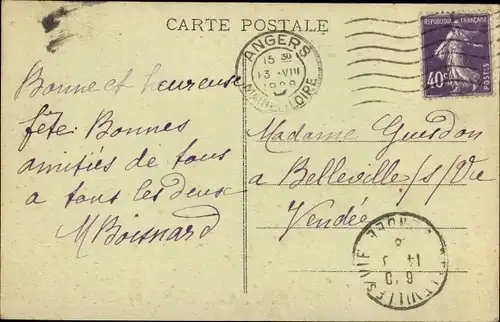 CARTE POSTALE
ANGERS
15 30
13 - VIII
MAINE-ET-LOIRE
REPUBLIQUE FRANÇAISE
40c
POSTES
Bonne et heureuse
fête. Bonnes
amitiés de tous
a tous les deux
M Boisnard
Madame Guesdon
a Belleville /s/ Vie
Vendée
BELLEVILLE S VIE
14